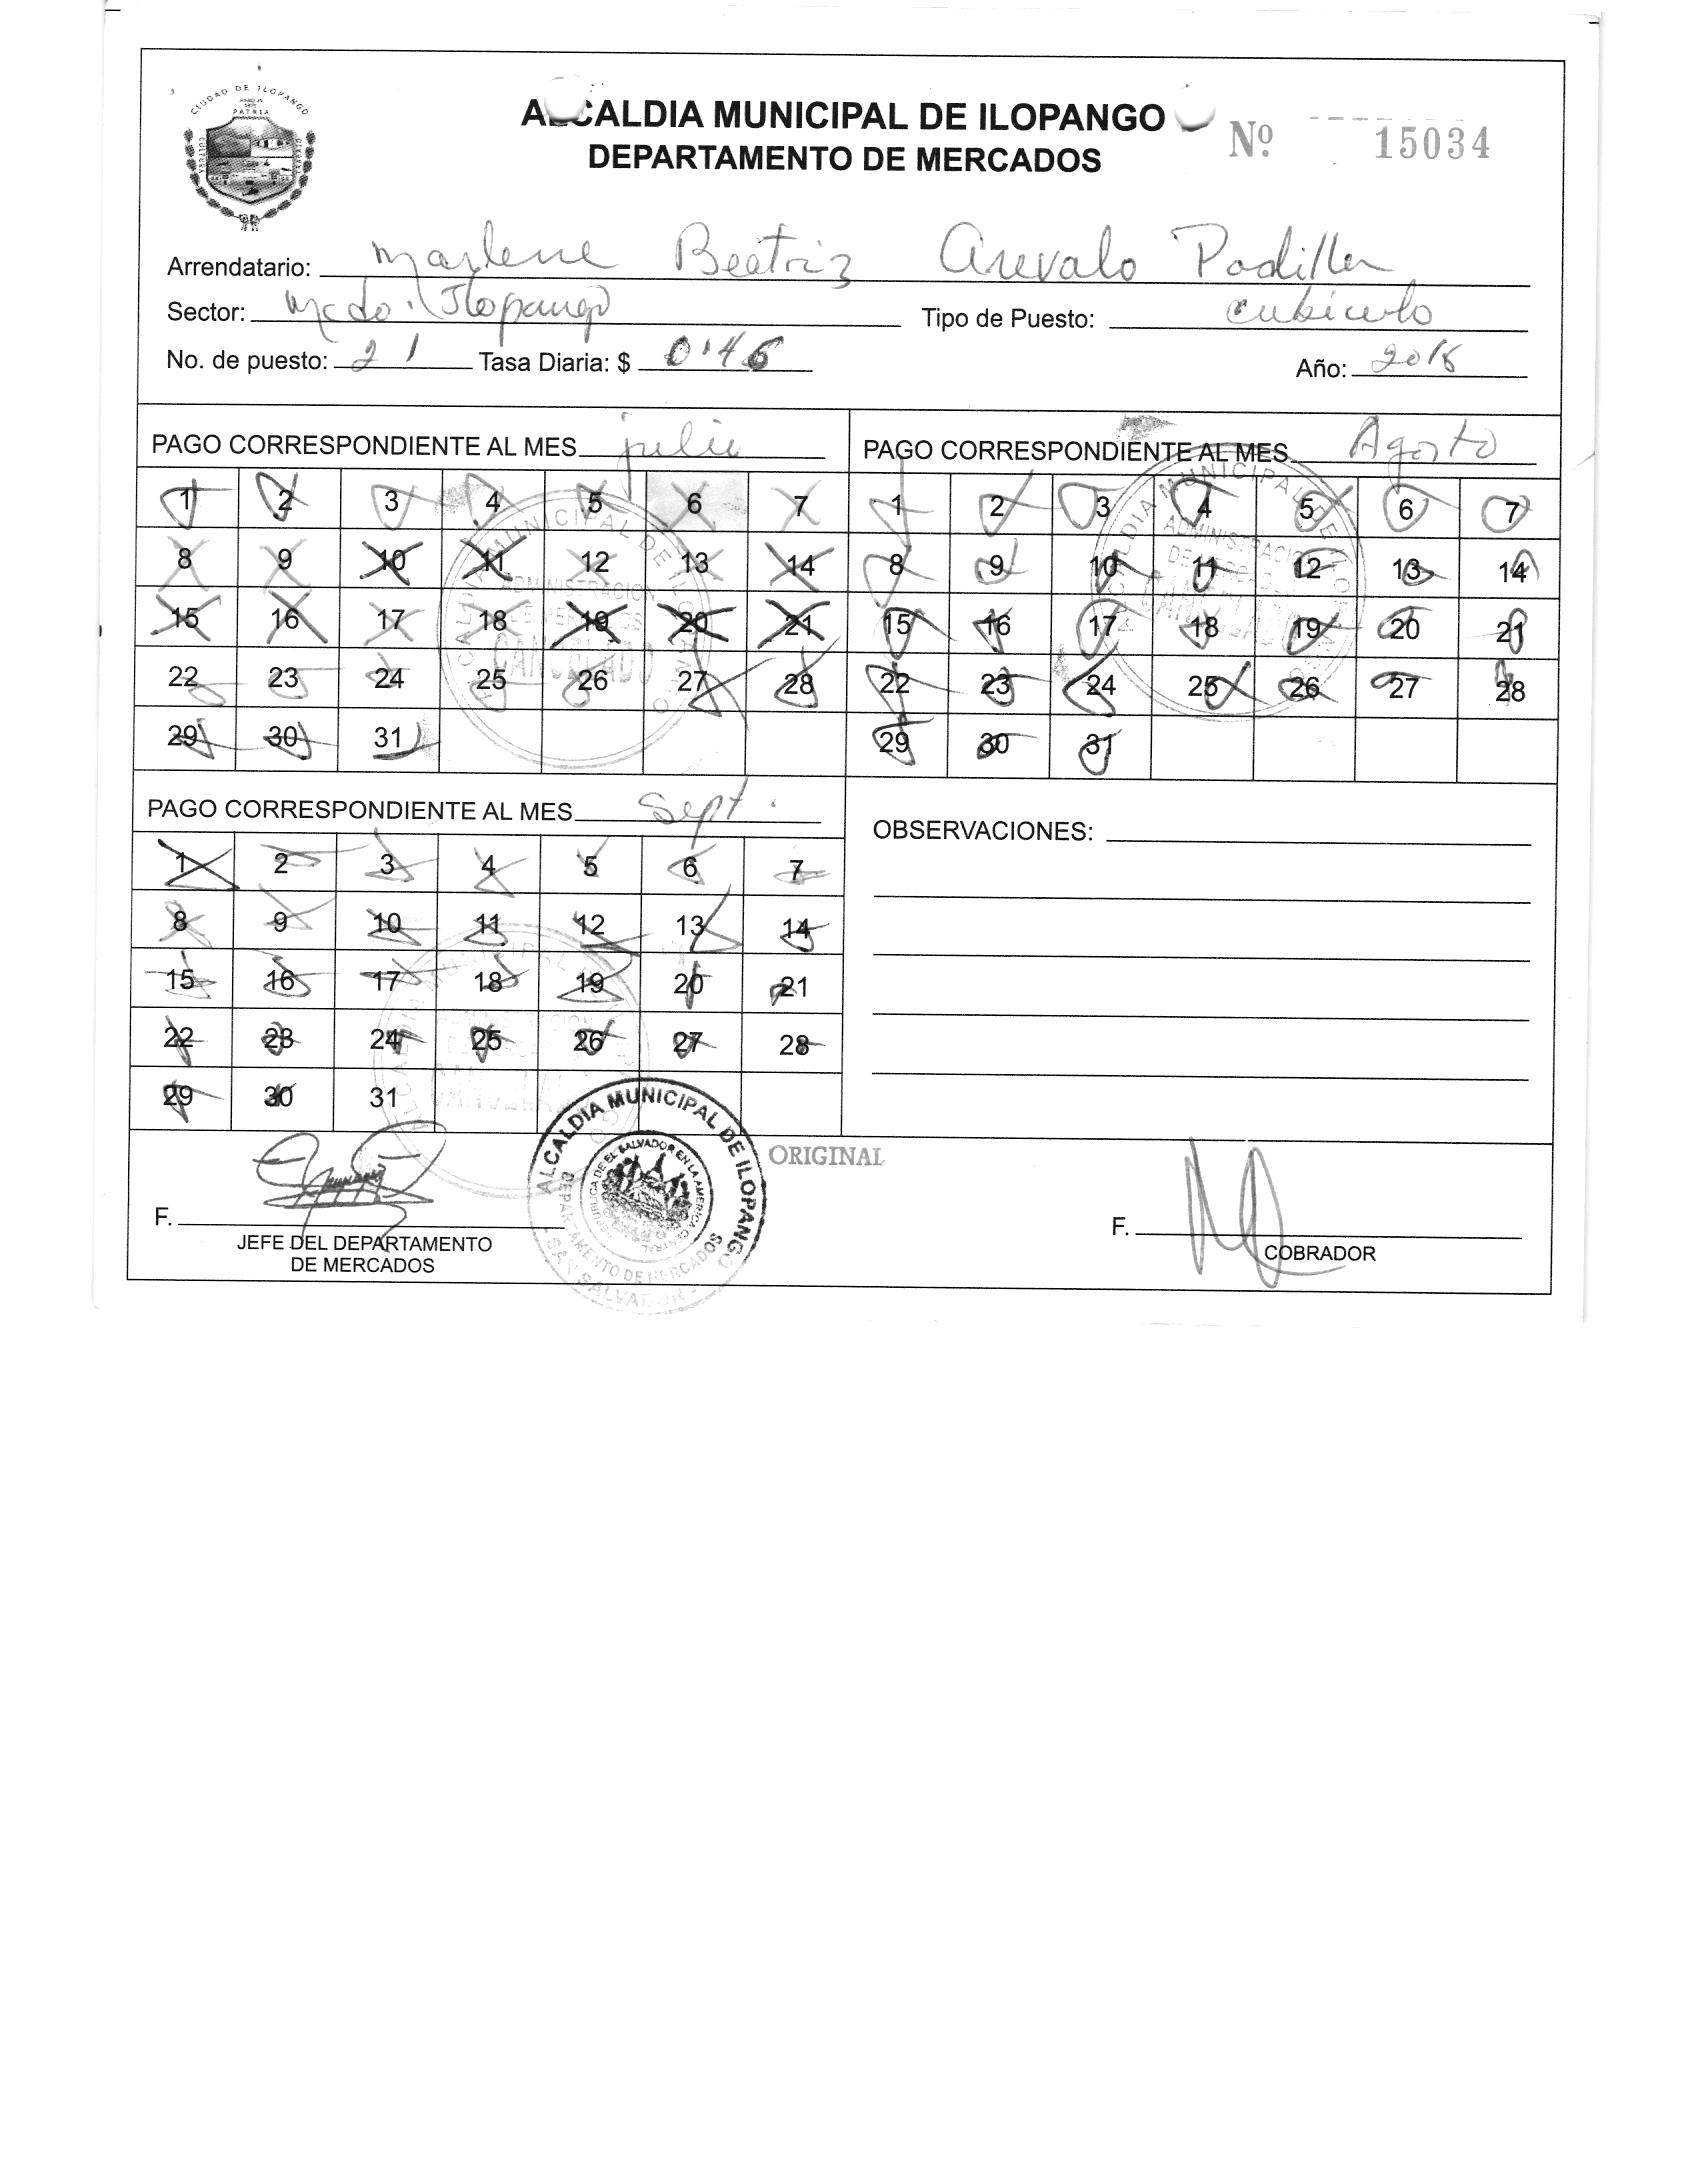 CIUDAD DE ILOPANGO
PATRIA
CULTURA
ALCALDIA MUNICIPAL DE ILOPANGO
DEPARTAMENTO DE MERCADOS
Nº 15034
Arrendatario: Marlene Beatriz Arevalo Padilla
Sector: Mcdo. Ilopango Tipo de Puesto: cubiculo
No. de puesto: 21 Tasa Diaria: $ 0.46 Año:
PAGO CORRESPONDIENTE AL MES julio
1 2 3 4 5 6 7
8 9 10 11 12 13 14
15 16 17 18 19 20 21
22 23 24 25 26 27 28
29 30 31
ALCALDIA MUNICIPAL DE ILOPANGO
ADMINISTRACION
DE MERCADOS
CANCELADO
PAGO CORRESPONDIENTE AL MES Agosto
1 2 3 4 5 6 7
8 9 10 11 12 13 14
15 16 17 18 19 20 21
22 23 24 25 26 27 28
29 30 31
ALCALDIA MUNICIPAL DE ILOPANGO
ADMINISTRACION
DE MERCADOS
CANCELADO
PAGO CORRESPONDIENTE AL MES Sept.
1 2 3 4 5 6 7
8 9 10 11 12 13 14
15 16 17 18 19 20 21
22 23 24 25 26 27 28
29 30 31
OBSERVACIONES:
ALCALDIA MUNICIPAL DE ILOPANGO
REPUBLICA DE EL SALVADOR EN LA AMERICA CENTRAL
DEPARTAMENTO DE MERCADOS
SAN SALVADOR
ORIGINAL
F.
JEFE DEL DEPARTAMENTO
DE MERCADOS
F.
COBRADOR